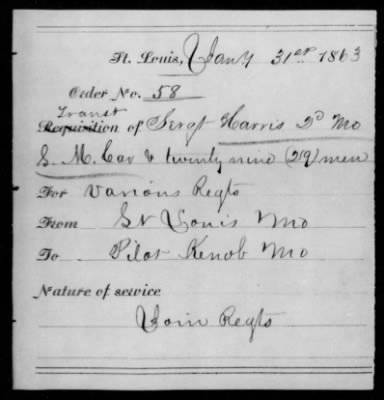 St. Louis, Jany 31st 1863
Order No. 58
Transt
Requisition of Sergt Harris 2d Mo
S. M. Cav & twenty nine (29) men
For Various Regts
From St Louis Mo
To Pilot Kenob Mo
Nature of service
Join Regts